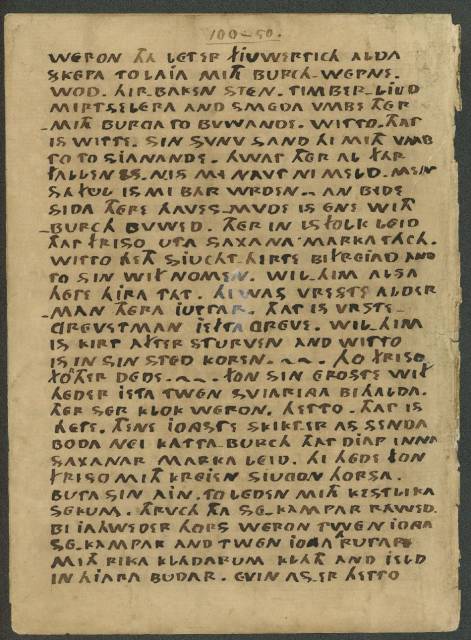 100-50.
WERON THA LETER FJUWERTICH ALDA
SKEPA TO LAJA MITH BURCH-WEPNE.
WOD. HIR-BAKEN STEN. TIMBER-LIUD
MIRTSELERA AND SMEDA VMBE THER
-MITH BURGA TO BUWANDE. WITTO. THAT
IS WITTE. SIN SVNV SAND HI MITH VMB
TO TO SJANANDE. HWAT THER AL FAR
FALLEN IS. NIS MI NAVT NI MELD. MEN
SA FUL IS MI BAR WRDEN. ~ AN BEDE
SIDA THERE HAVES-MVDE IS ENE WITH
-BURCH BUWED. THER IN IS FOLK LEID
THAT FRISO UTA SAXANA-MARKA TACH.
WITTO HETH SJUCHT-HIRTE BIFREJAD AND
TO SIN WIF NOMEN. WIL-HIM ALSA
HETE HIRA TAT. HI WAS VRESTE ALDER
-MAN THERA JUTTAR. THAT IS VRSTE-
GREVETMAN JEFTA GREVE. WIL-HIM
IS KIRT AFTER STURVEN AND WITTO
IS IN SIN STED KOREN. ~. ~. HO FRISO
FORTHER DEDE. ~. ~. FON SIN EROSTE WIF
HEDER JETA TWEN SVJARINGA BIHALDA.
THER SER KLOK WERON. HETTO. THAT IS
HETE. THENE JONGSTE SKIKTER AS SENDA
BODA NEI KATTA-BURCH THAT DJAP INNA
SAXANAR MARKA LEID. HI HEDE FON
FRISO MITH KREJEN SJUGON HORSA.
BUTA SIN AIN. TO LEDEN MITH KESTLIKA
SEKUM. THRVCH THA SE-KAMPAR RAWED.
BI JAHWEDER HORS WERON TWEN JONGA
SE-KAMPAR AND TWEN JONGA RUTAR
MITH RIKA KLADARUM KLATH AND JELD
IN HJARA BUDAR. EVIN AS-ER HETTO